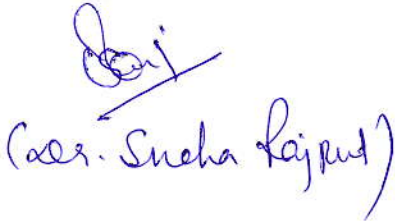 (Dr. Sneha Rajput)